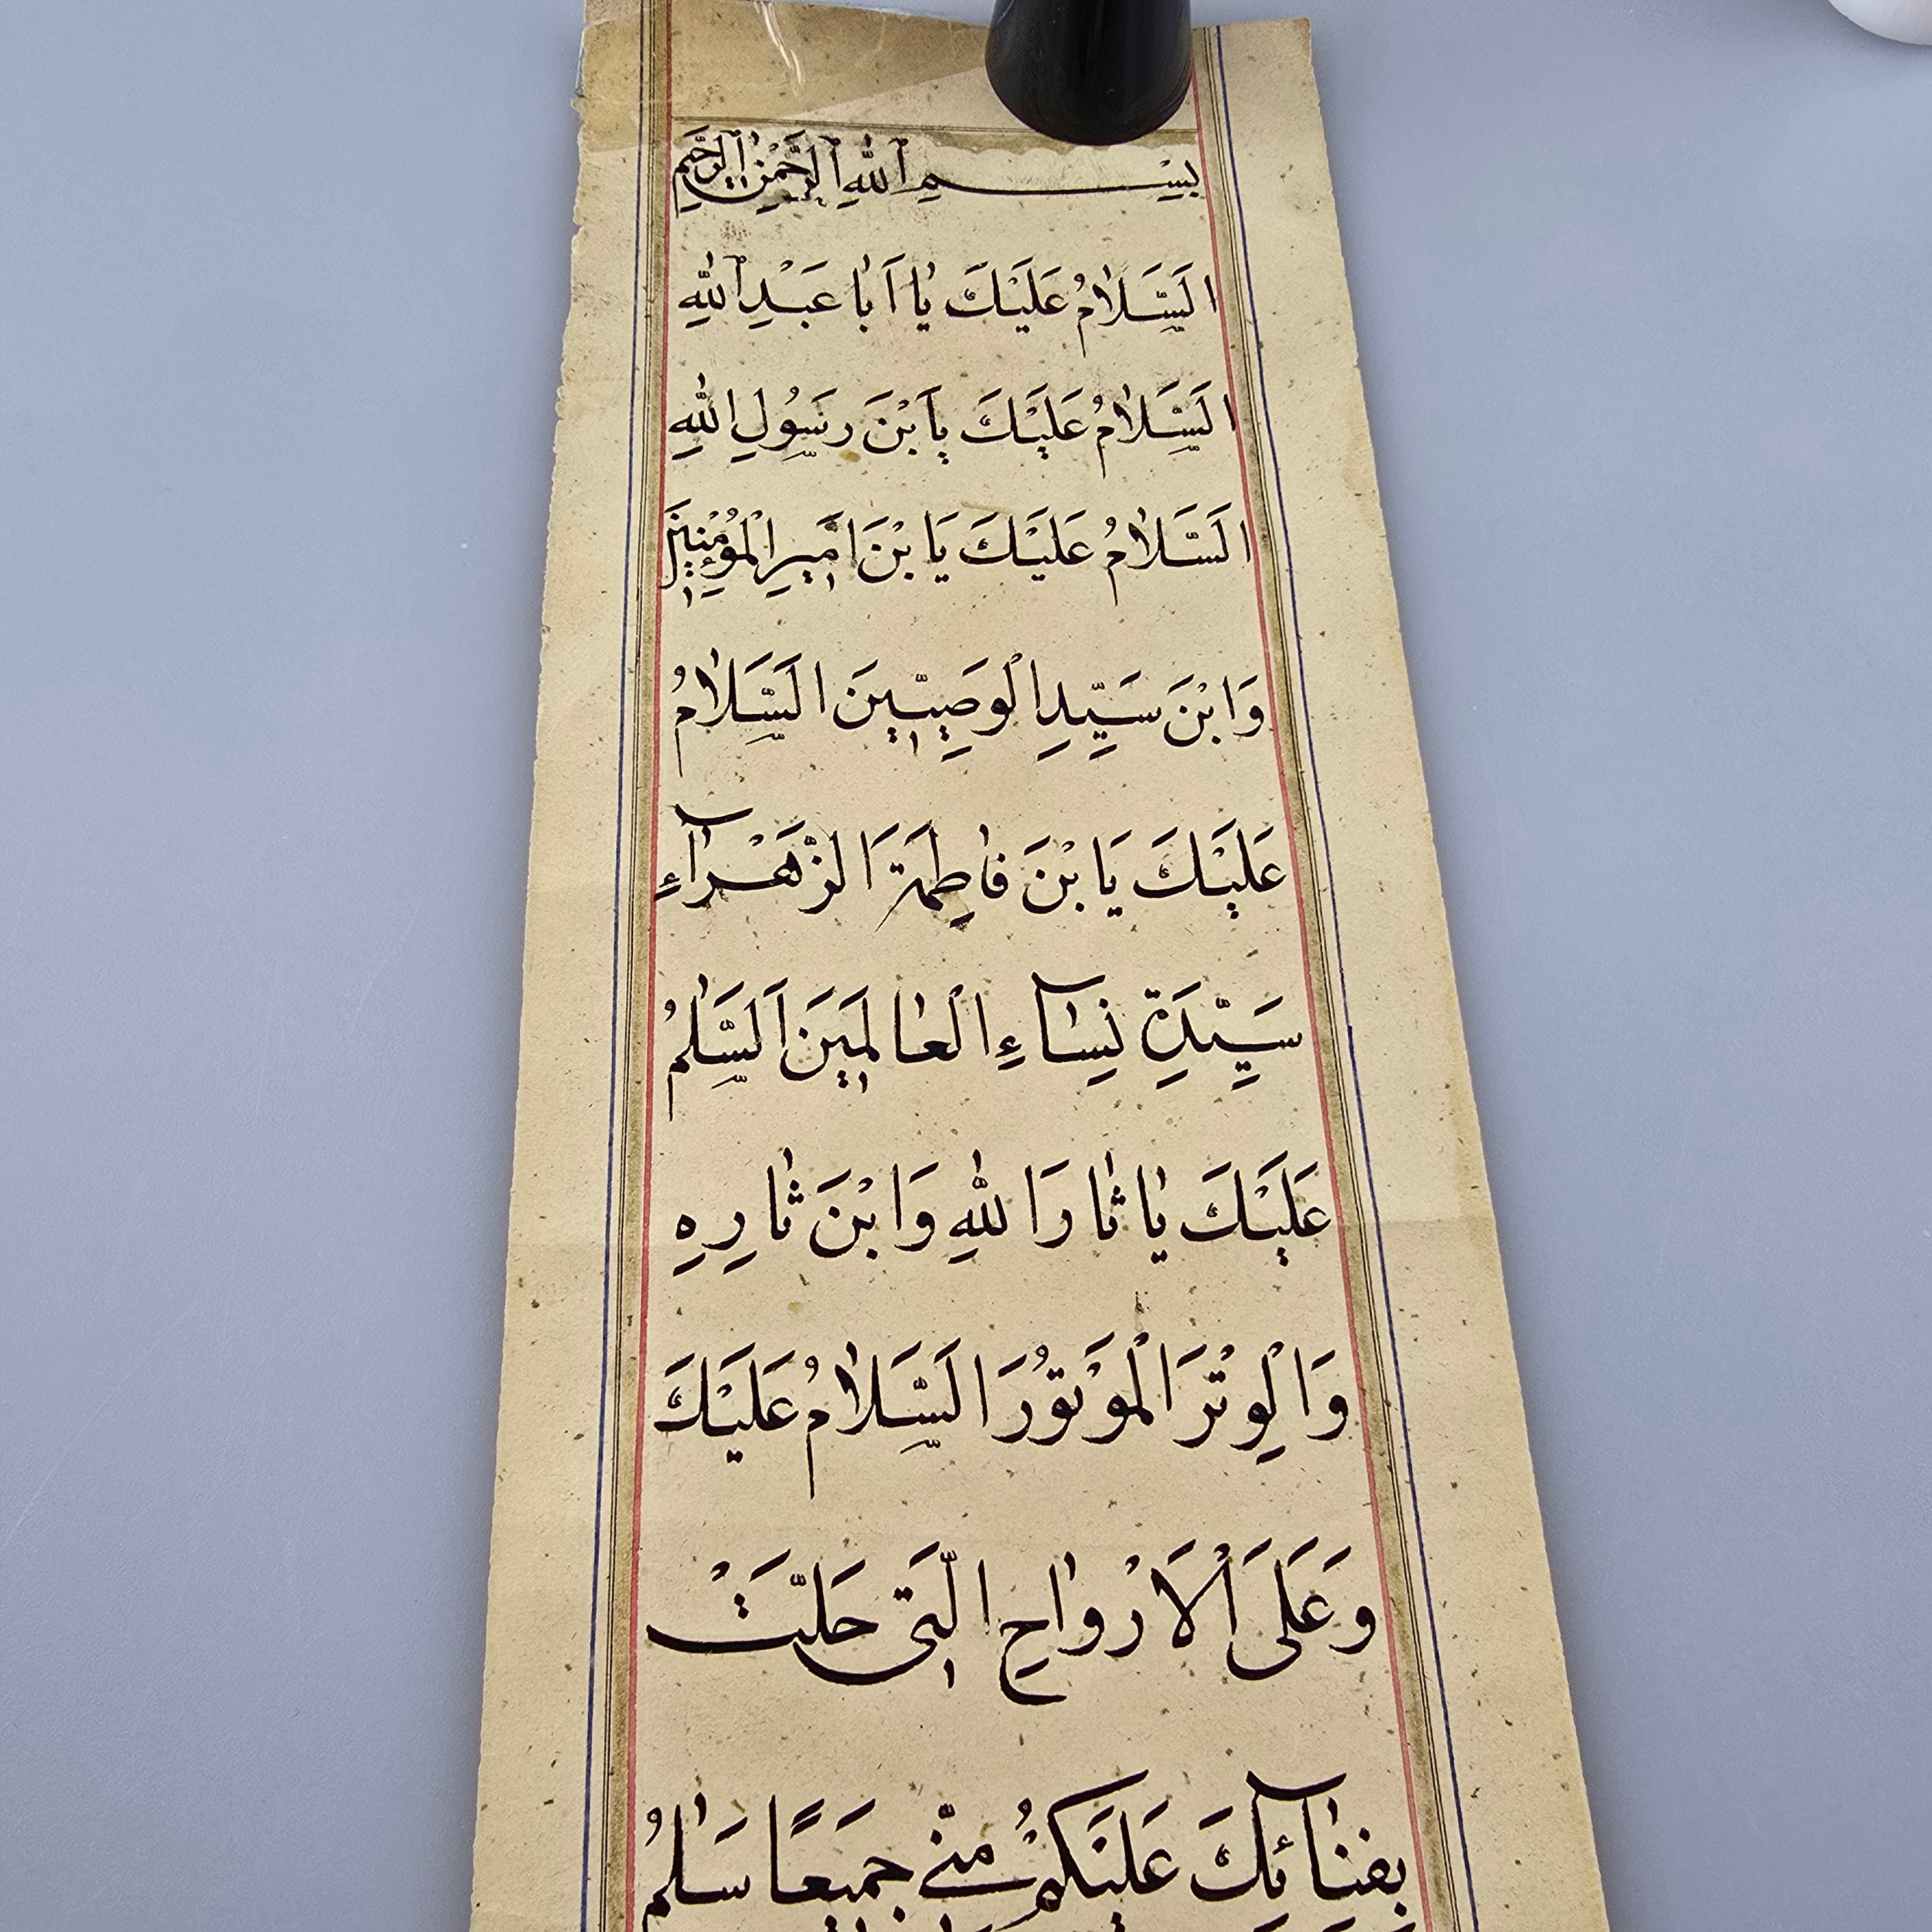 بِسْمِ ٱللّٰهِ ٱلرَّحْمٰنِ ٱلرَّحِيمِ
اَلسَّلَامُ عَلَيْكَ يَا اَبَا عَبْدِ ٱللّٰهِ
اَلسَّلَامُ عَلَيْكَ يَا بْنَ رَسُولِ اللّٰهِ
اَلسَّلَامُ عَلَيْكَ يَا بْنَ اَمِيرِ الْمُؤْمِنِينَ
وَابْنَ سَيِّدِ الْوَصِيِّينَ اَلسَّلَامُ
عَلَيْكَ يَا بْنَ فَاطِمَةَ الزَّهْرَآءِ
سَيِّدَةِ نِسَآءِ الْعَالَمِينَ اَلسَّلٰمُ
عَلَيْكَ يَا ثَارَ اللّٰهِ وَابْنَ ثَارِهِ
وَالْوِتْرَ الْمَوْتُورَ اَلسَّلَامُ عَلَيْكَ
وَعَلَى الْاَرْوَاحِ الَّتِى حَلَّتْ
بِفِنَآئِكَ عَلَيْكُمْ مِنّى جَمِيعًا سَلٰمُ